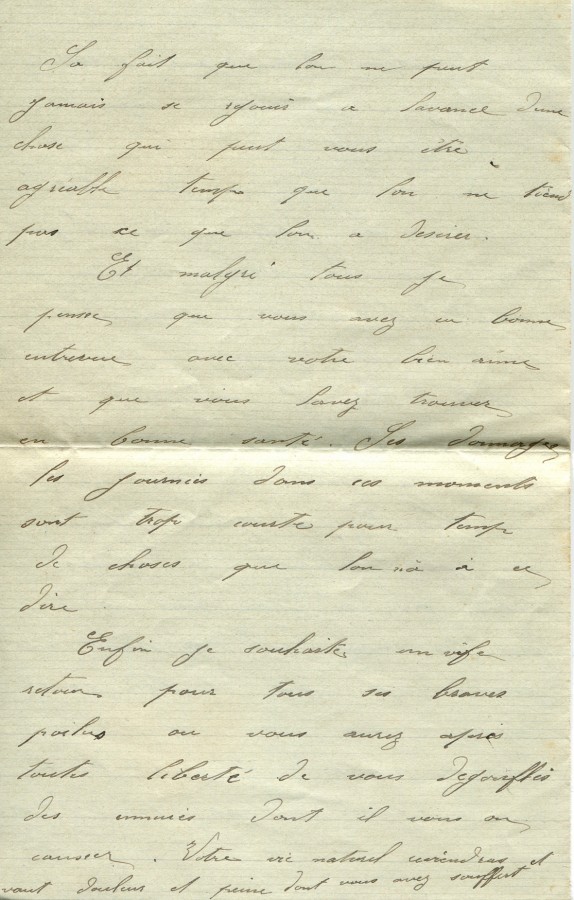 Sa fait que lon ne peut
jamais se rejouis a lavance dune
chose qui peut vous être
agréable temp que lon ne tiend
pas ce que lon a desirer.
Et malgré tous je
pense que vous avez eu bonne
entrevue avec votre bien aimé
et que vous lavez trouver
en bonne santé. Ses domages
les journeés dans ces moments
sont trop courte pour temp
de choses que lon n'a à ce
dire.
Enfin je souhaite un vife
retour pour tous ses braves
poilus ou vous aurez après
toutes liberté de vous
des ennuies dont il vous on
causser. Votre vie naturel reviendras et
vaut douleur et peine dont vous avez souffert et